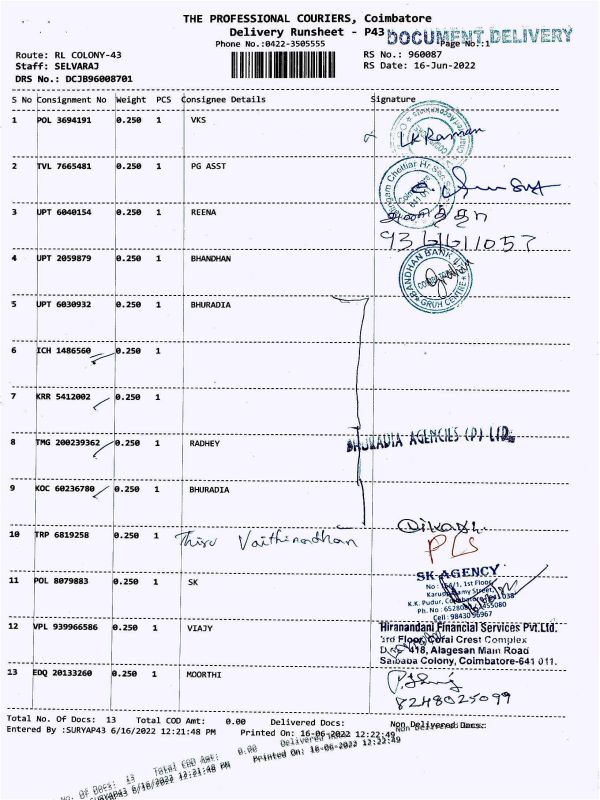 THE PROFESSIONAL COURIERS, Coimbatore
Delivery Runsheet - P43
DOCUMENT DELIVERY
Phone No.:0422-3505555
Page No.:1
Route: RL COLONY-43
RS No.: 960087
Staff: SELVARAJ
RS Date: 16-Jun-2022
DRS No.: DCJB96008701
S No Consignment No Weight PCS Consignee Details Signature
1 POL 3694191 0.250 1 VKS
LK Raman
2 TVL 7665481 0.250 1 PG ASST
3 UPT 6040154 0.250 1 REENA
4 UPT 2059879 0.250 1 BHANDHAN
BANDHAN BANK
GRUH CENTRE
5 UPT 6030932 0.250 1 BHURADIA
6 ICH 1486560 0.250 1
7 KRR 5412002 0.250 1
8 TMG 200239362 0.250 1 RADHEY
BHURADIA AGENCIES (P) LTD.
9 KOC 60236780 0.250 1 BHURADIA
10 TRP 6819258 0.250 1 Thiru Vaithinadhan
11 POL 8079883 0.250 1 SK
SK AGENCY
1st Floor
K.K. Pudur,
Cell: 98430 96967
12 VPL 939966586 0.250 1 VIAJY
Hiranandani Financial Services Pvt.Ltd.
3rd Floor, Corai Crest Complex
418, Alagesan Main Road
Saibaba Colony, Coimbatore-641 011.
13 EDQ 20133260 0.250 1 MOORTHI
8248025099
Total No. Of Docs: 13 Total COD Amt: 0.00 Delivered Docs: Non Delivered Docs:
Entered By :SURYAP43 6/16/2022 12:21:48 PM Printed On: 16-06-2022 12:22:49
No. Of Docs: 13 Total COD Amt: 0.00 Delivered
SURYAP43 6/16/2022 12:21:48 PM Printed On: 16-06-2022 12:22:49